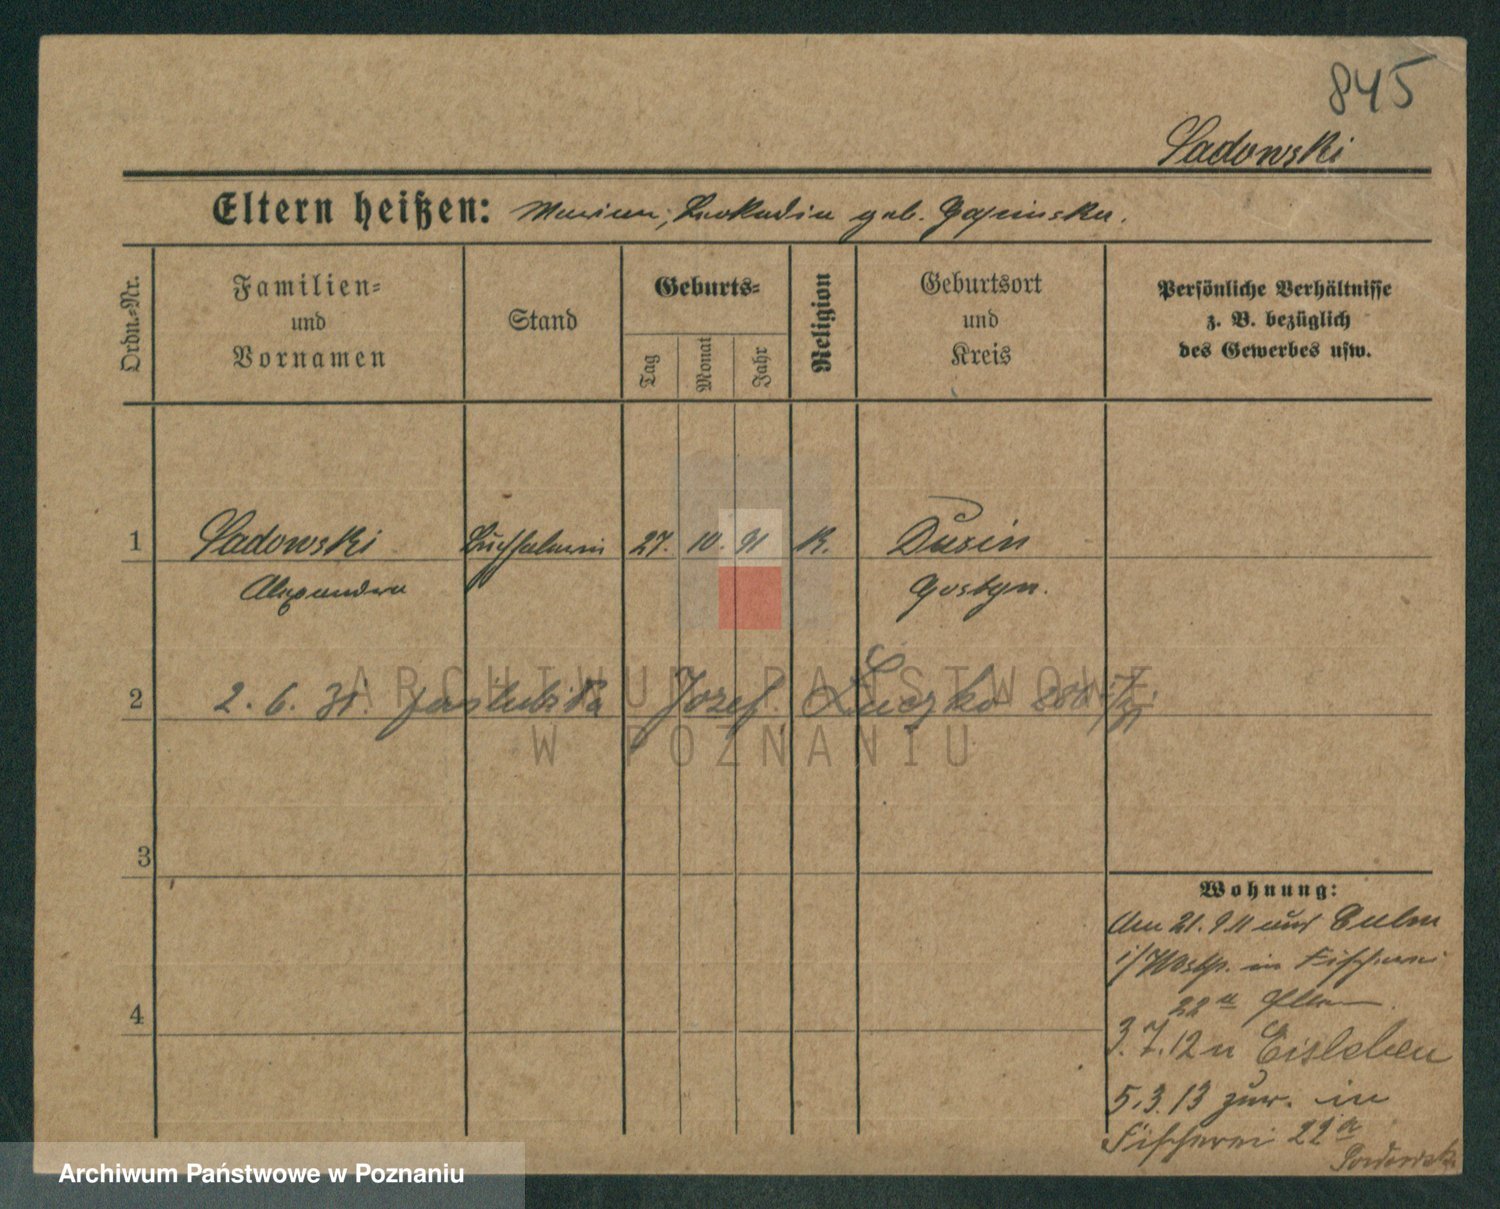 845
Sadowski
Eltern heißen: Marian, Leokadia geb. Gajewska.
Ordn.-Nr.
Familien-
und
Vornamen
Stand
Geburts-
Tag
Monat
Jahr
Religion
Geburtsort
und
Kreis
Persönliche Verhältnisse
z. B. bezüglich
des Gewerbes usw.
1 Sadowski Buchhalterin 27. 10. 91 K. Dusin
Alexandra Gostyn.
2 2. 6. 31. poślubiła Józef Luczko
3
4
Wohnung:
Am 21. 9 11 aus Culm
i/Westp. in Fischerei
22a Eltern
3.7.12 n Eisleben
5.3.13 zur. in
Fischerei 22a
ARCHIWUM PAŃSTWOWE
W POZNANIU
Archiwum Państwowe w Poznaniu